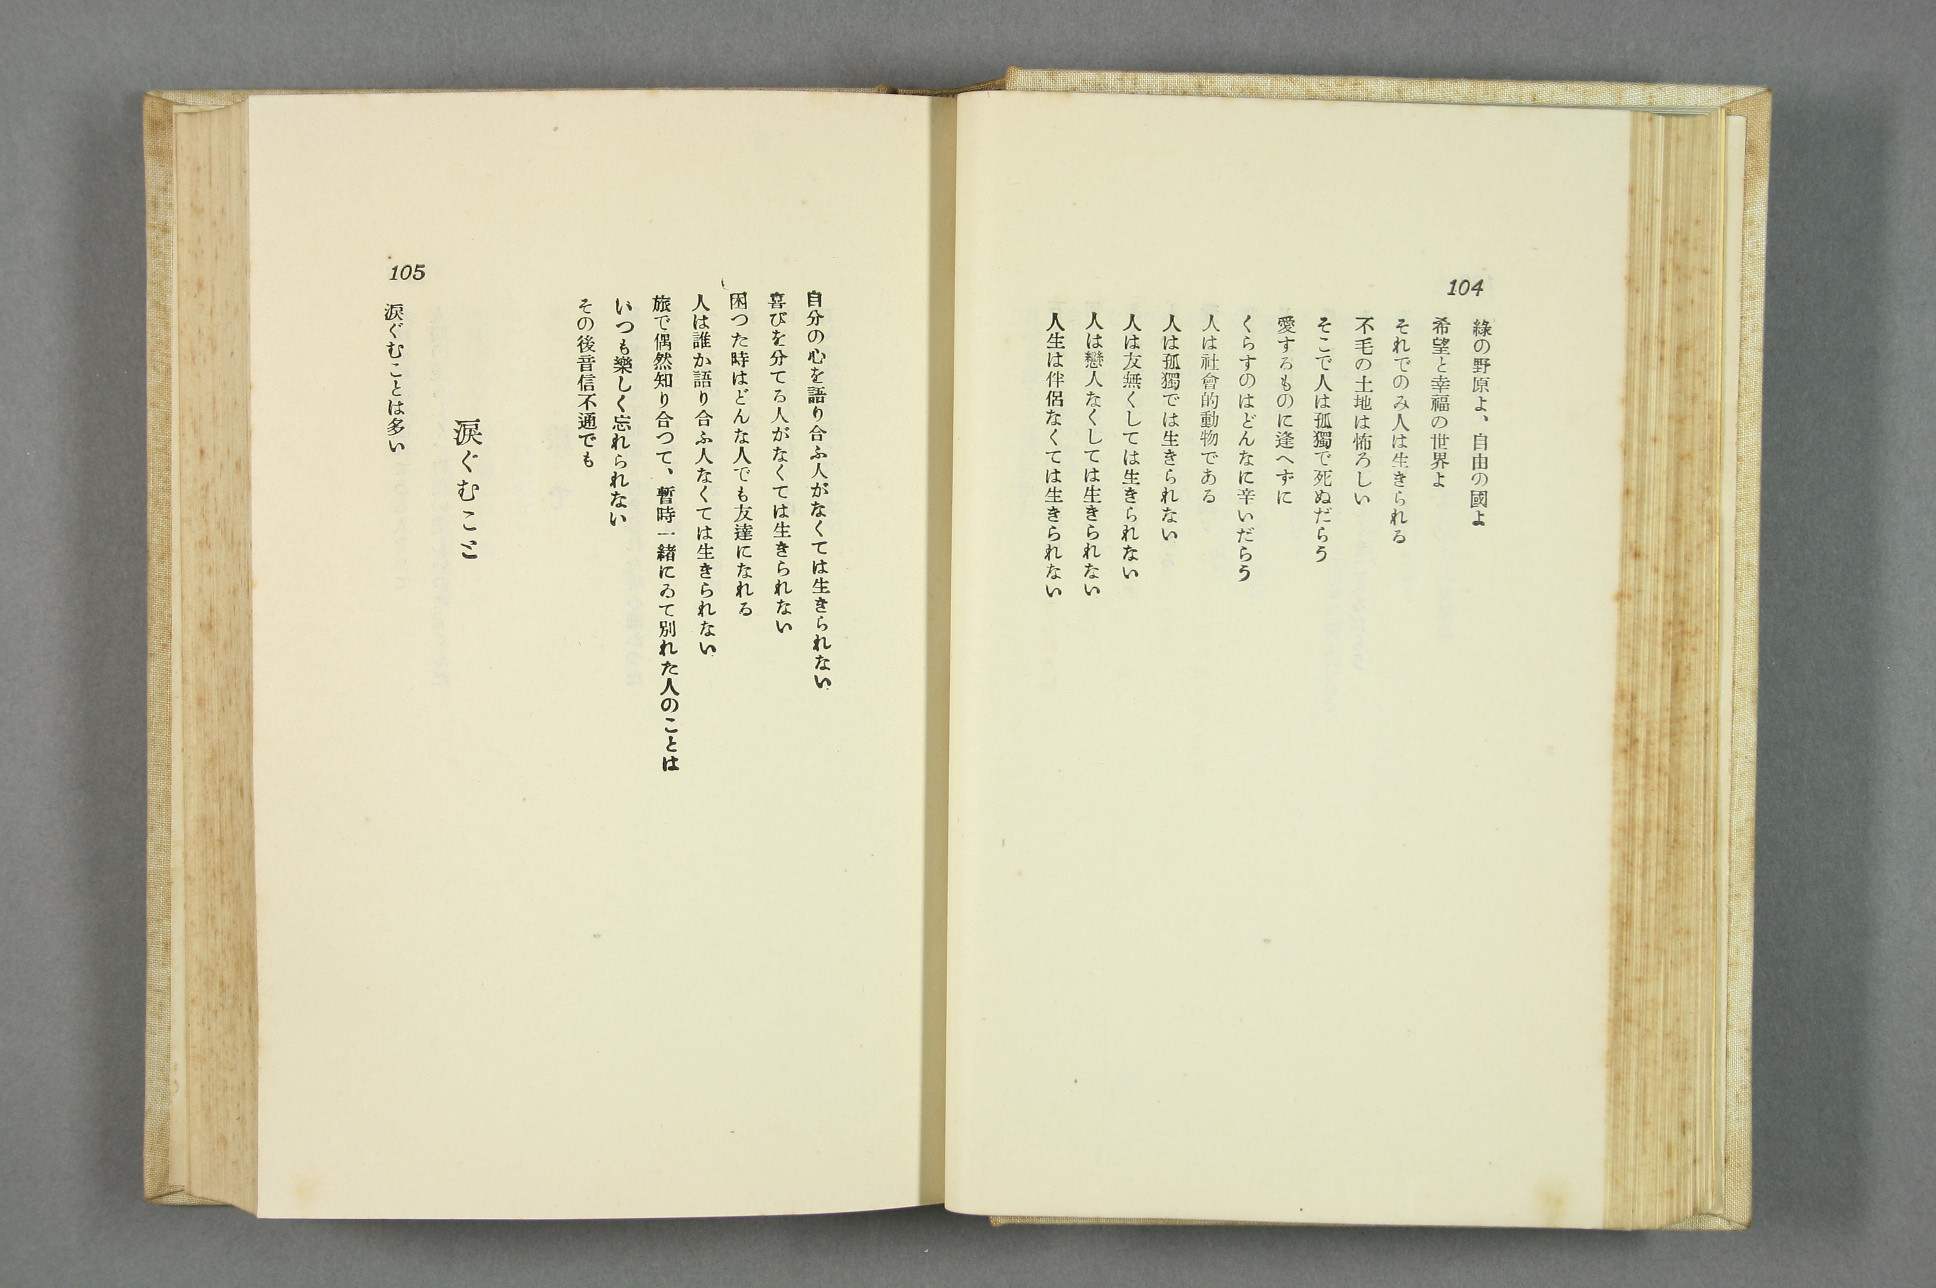 104
綠の野原よ、自由の國よ
希望と幸福の世界よ
それでのみ人は生きられる
不毛の土地は怖ろしい
そこで人は孤獨で死ぬだらう
愛するものに逢へずに
くらすのはどんなに辛いだらう
人は社會的動物である
人は孤獨では生きられない
人は友無くしては生きられない
人は戀人なくしては生きられない
人生は伴侶なくては生きられない
自分の心を語り合ふ人がなくては生きられない
喜びを分てる人がなくては生きられない
困つた時はどんな人でも友達になれる
人は誰か語り合ふ人なくては生きられない
旅で偶然知り合つて、暫時一緖にゐて別れた人のことは
いつも樂しく忘れられない
その後音信不通でも
涙ぐむこと
105
涙ぐむことは多い